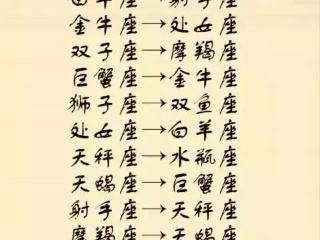 白羊座→射手座
金牛座→处女座
双子座→摩羯座
巨蟹座→金牛座
狮子座→双鱼座
处女座→白羊座
天秤座→水瓶座
天蝎座→巨蟹座
射手座→天秤座
摩羯座→天蝎座